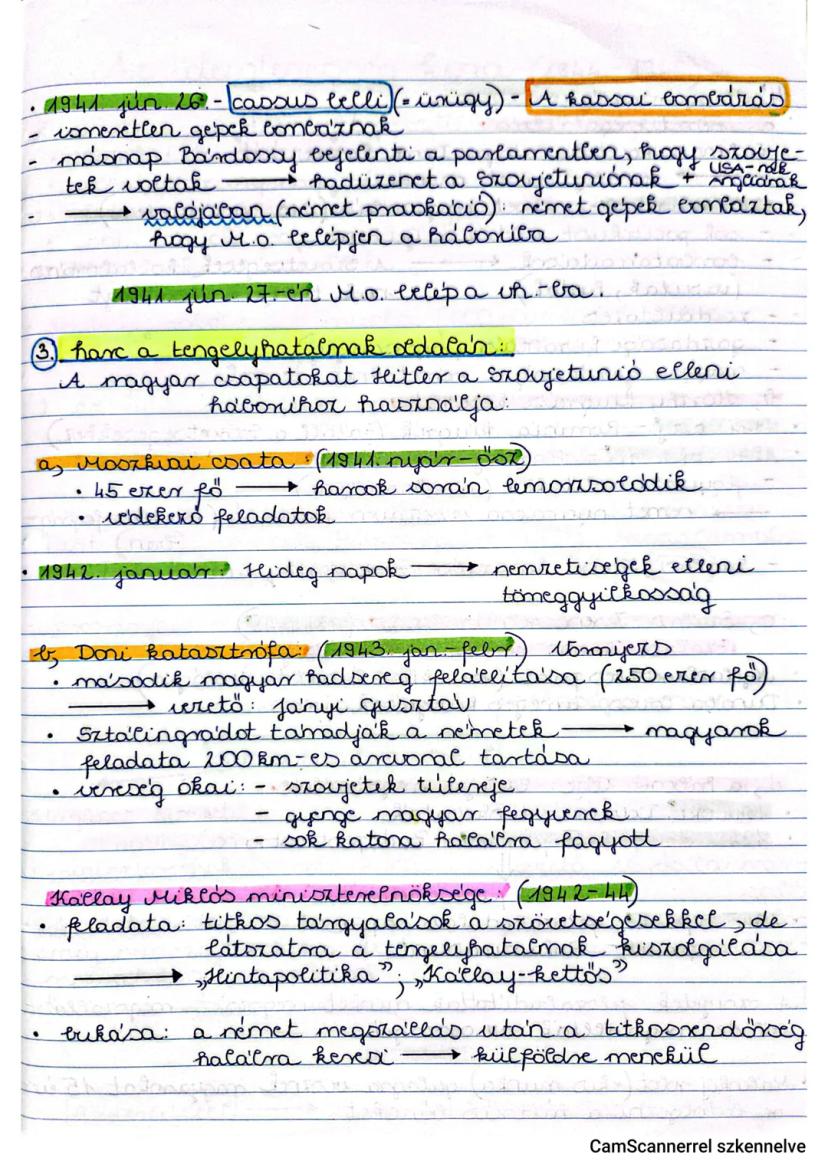 • 1941. jún. 26. - cassus belli (= ürügy) - A kassai bombázás
- ismeretlen gépek bombáznak
- másnap Bárdossy bejelenti a parlamentben, hogy szovje-
tek voltak → hadüzenet a Szovjetuniónak + USA-nak Angliának
- → valójában (német provokáció): német gépek bombáztak,
hogy M.o. belépjen a háborúba
1941. jún. 27.-én M.o. belép a vh-ba.
3. harc a tengelyhatalmak oldalán:
A magyar csapatokat Hitler a Szovjetunió elleni
háborúhoz használja:
a, Moszkvai csata: (1941. nyár-ősz)
• 45 ezer fő → harcok során lemorzsolódik
• védekező feladatok
• 1942. január: Hideg napok → nemzetiségek elleni
tömeggyilkosság
b, Doni katasztrófa: (1943. jan.-febr.) Vörnyezs
• második magyar hadsereg felállítása (250 ezer fő)
→ vezető: Jányi Gusztáv
• Sztálingrádot támadják a németek → magyarok
feladata 200 km-es arcvonal tartása
• vereség okai: - szovjetek túlereje
- gyenge magyar fegyverek
- sok katona halálra fagyott
Kállay Miklós miniszterelnöksége: (1942-44)
• feladata: titkos tárgyalások a szövetségesekkel, de
látszatra a tengelyhatalmak kiszolgálása
→ „Hintapolitika"; „Kállay-kettős"
• bukása: a német megszállás után a titkosrendőrség
halálra keresi → külföldre menekül
CamScannerrel szkennelve